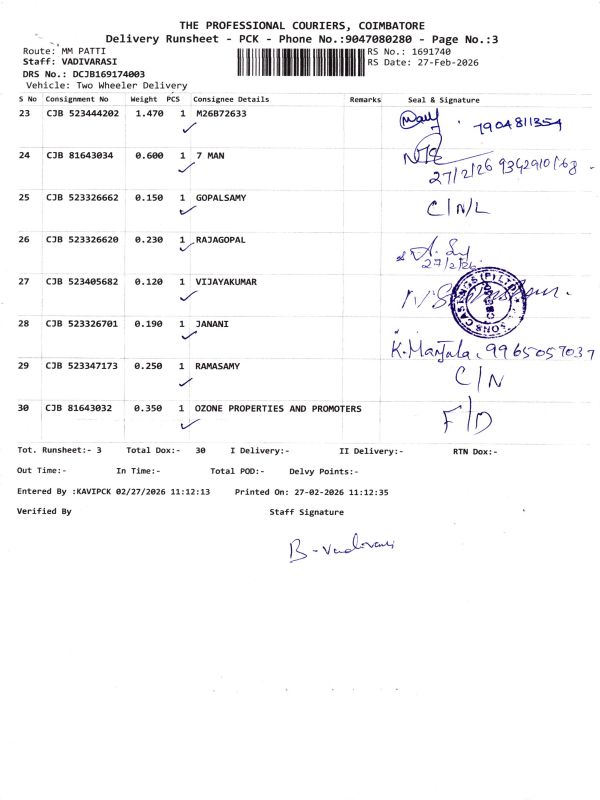 THE PROFESSIONAL COURIERS, COIMBATORE
Delivery Runsheet - PCK - Phone No.:9047080280 - Page No.:3
Route: MM PATTI
RS No.: 1691740
Staff: VADIVARASI
RS Date: 27-Feb-2026
DRS No.: DCJB169174003
Vehicle: Two Wheeler Delivery
S No Consignment No Weight PCS Consignee Details Remarks Seal & Signature
23 CJB 523444202 1.470 1 M26B72633 7904811354
24 CJB 81643034 0.600 1 7 MAN
27/2/26
25 CJB 523326662 0.150 1 GOPALSAMY C/N/L
26 CJB 523326620 0.230 1 RAJAGOPAL
27/2/26
27 CJB 523405682 0.120 1 VIJAYAKUMAR
28 CJB 523326701 0.190 1 JANANI
K. Manjala, 9965057037
29 CJB 523347173 0.250 1 RAMASAMY C/N
30 CJB 81643032 0.350 1 OZONE PROPERTIES AND PROMOTERS F/D
Tot. Runsheet:- 3 Total Dox:- 30 I Delivery:- II Delivery:- RTN Dox:-
Out Time:- In Time:- Total POD:- Delvy Points:-
Entered By :KAVIPCK 02/27/2026 11:12:13 Printed On: 27-02-2026 11:12:35
Verified By Staff Signature